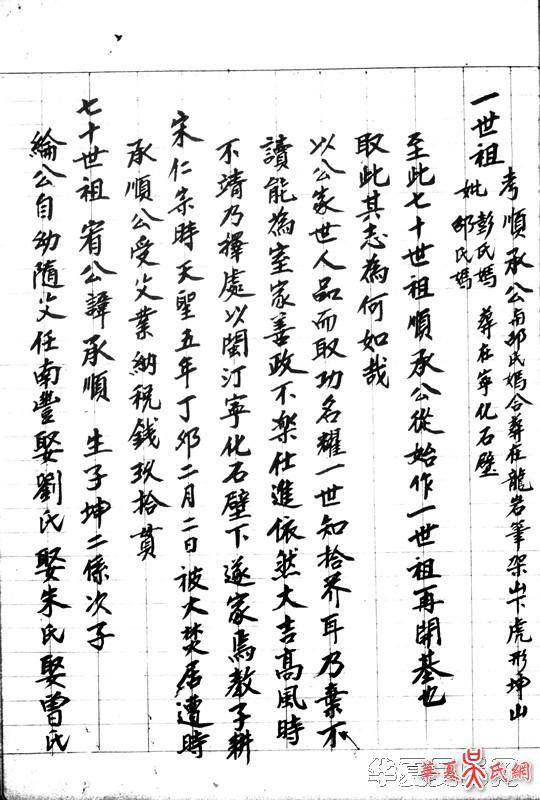 一世祖
考順承公與邱氏媽合葬在龍岩筆架山下虎形坤山
妣彭氏媽 葬在寧化石壁
邱氏媽
至此七十世祖順承公從始作一世祖再開基也
取此其志為何如哉
以公家世人品而取功名耀一世知拾芥耳乃棄不
讀能為室家善政不樂仕進依然大吉高風時
不靖乃擇處以閩汀寧化石壁下遂家焉教子耕
宋仁宗時天聖五年丁卯二月二日被火焚居遭時
承順公受父業納稅錢玖拾貫
七十世祖宥公諱承順 生子坤二係次子
綸公自幼隨父任南豐娶劉氏娶朱氏娶曾氏
華夏吳氏網